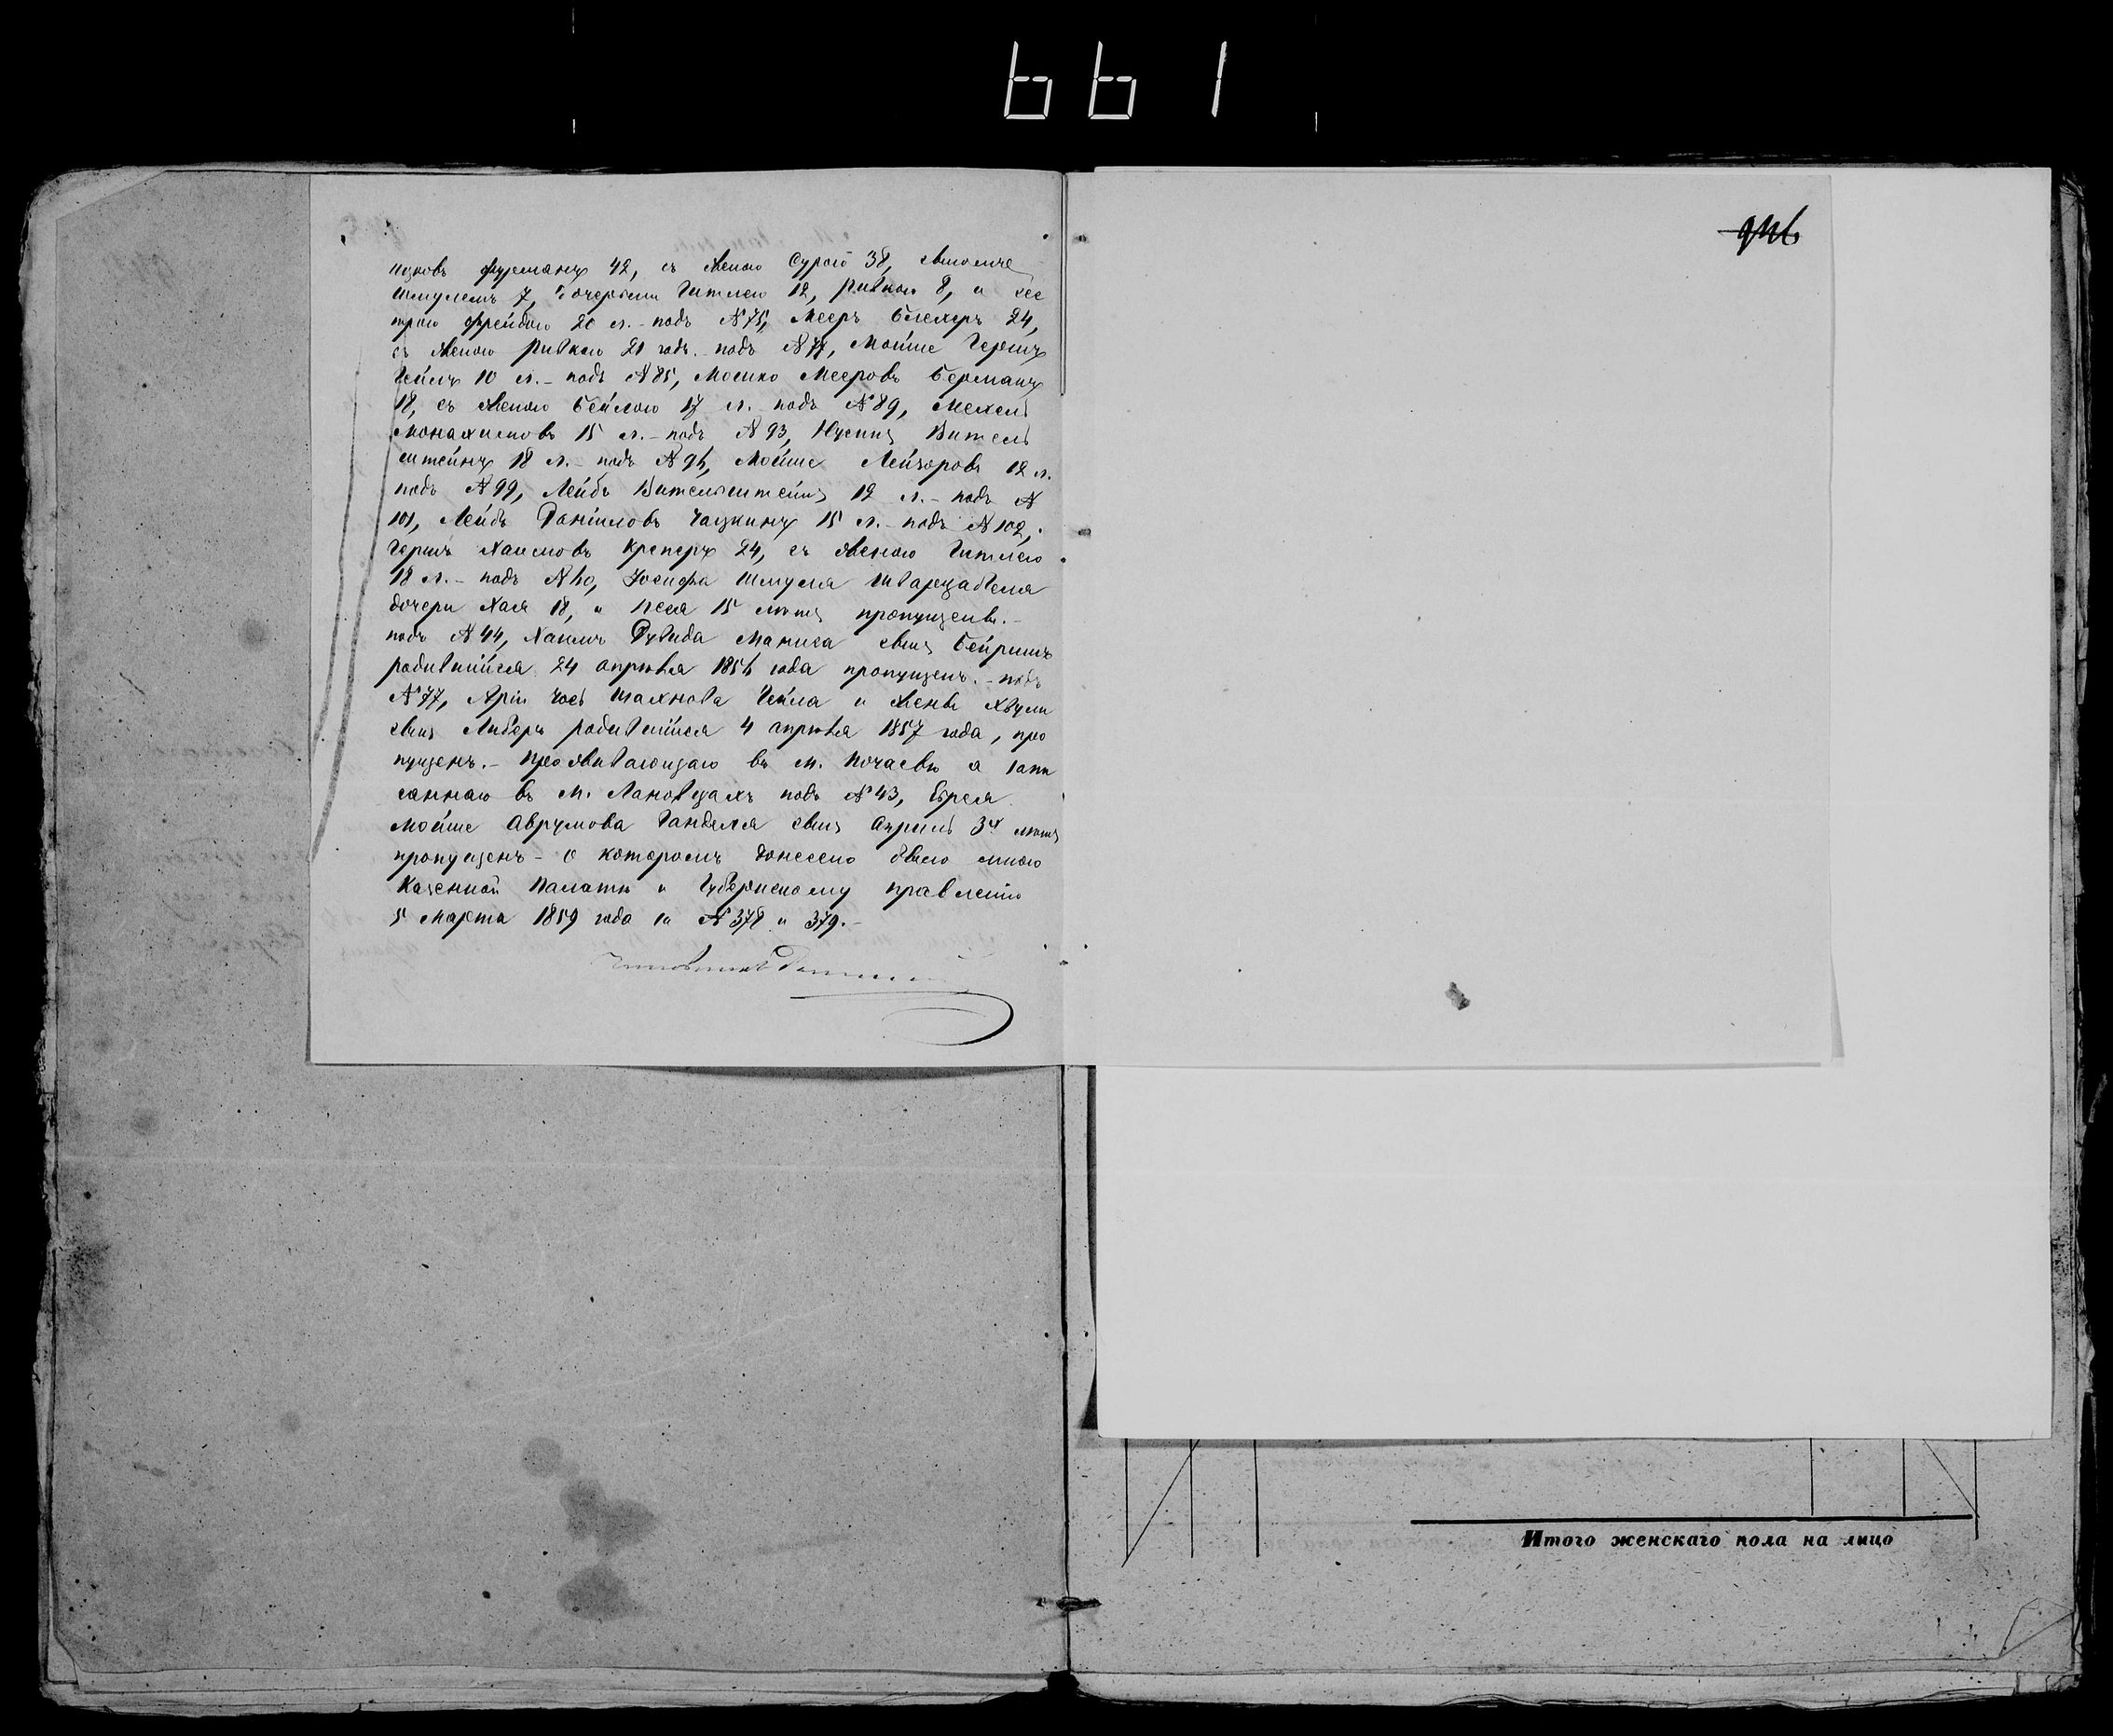 661
нзковъ фурманъ 42, съ женою Сурою 38, сыномъ
Шмулемъ 7, дочерьми Гитлею 12, Ривкою 8, и сес
трою Фрейдою 20 л. - подъ №75, Мееръ Блехеръ 24,
съ женою Ривкою 21 годъ. - подъ № 77, Мойше Гершъ
Гейлъ 10 л. - подъ №85, Мошко Мееровъ Берманъ
18, съ женою Бейлою 17 л. подъ №89, Мехель
Монахимовъ 15 л. - подъ №93, Нусинъ Витель
штейнъ 18 л. - подъ № 96, Мойше Лейзоровъ 12 л.
подъ №99, Лейбъ Вительштейнъ 12 л. - подъ №
101, Лейбъ Данiиловъ Чацкинъ 15 л. - подъ №102,
Гершъ Хаимовъ Креперъ 24, съ женою Гитлею
18 л. - подъ № 40, Iосифа Шмуля Шварцабеля
дочери Хая 18, и Песя 15 лѣтъ пропущены. -
подъ №44, Хаимъ Дувида Маниса сынъ Бейришъ
родившiйся 24 апрѣля 1856 года пропущенъ. - подъ
№77, Арiи Iось Шахнова Гейла и жены Хвули
сынъ Либеръ родившiйся 4 апрѣля 1857 года, про
пущенъ. - Проживающаго въ м. Почаевѣ а запи
саннаго въ м. Лановцахъ подъ №43, Еврея
Мойше Аврумова сынъ 3хъ лѣтъ
пропущенъ - о которомъ донесено было мною
Казенной Палатѣ и Губернскому правленiю
5 Марта 1859 года за №378 и 379. -
Чиновникъ
Итого женскаго пола на лицо